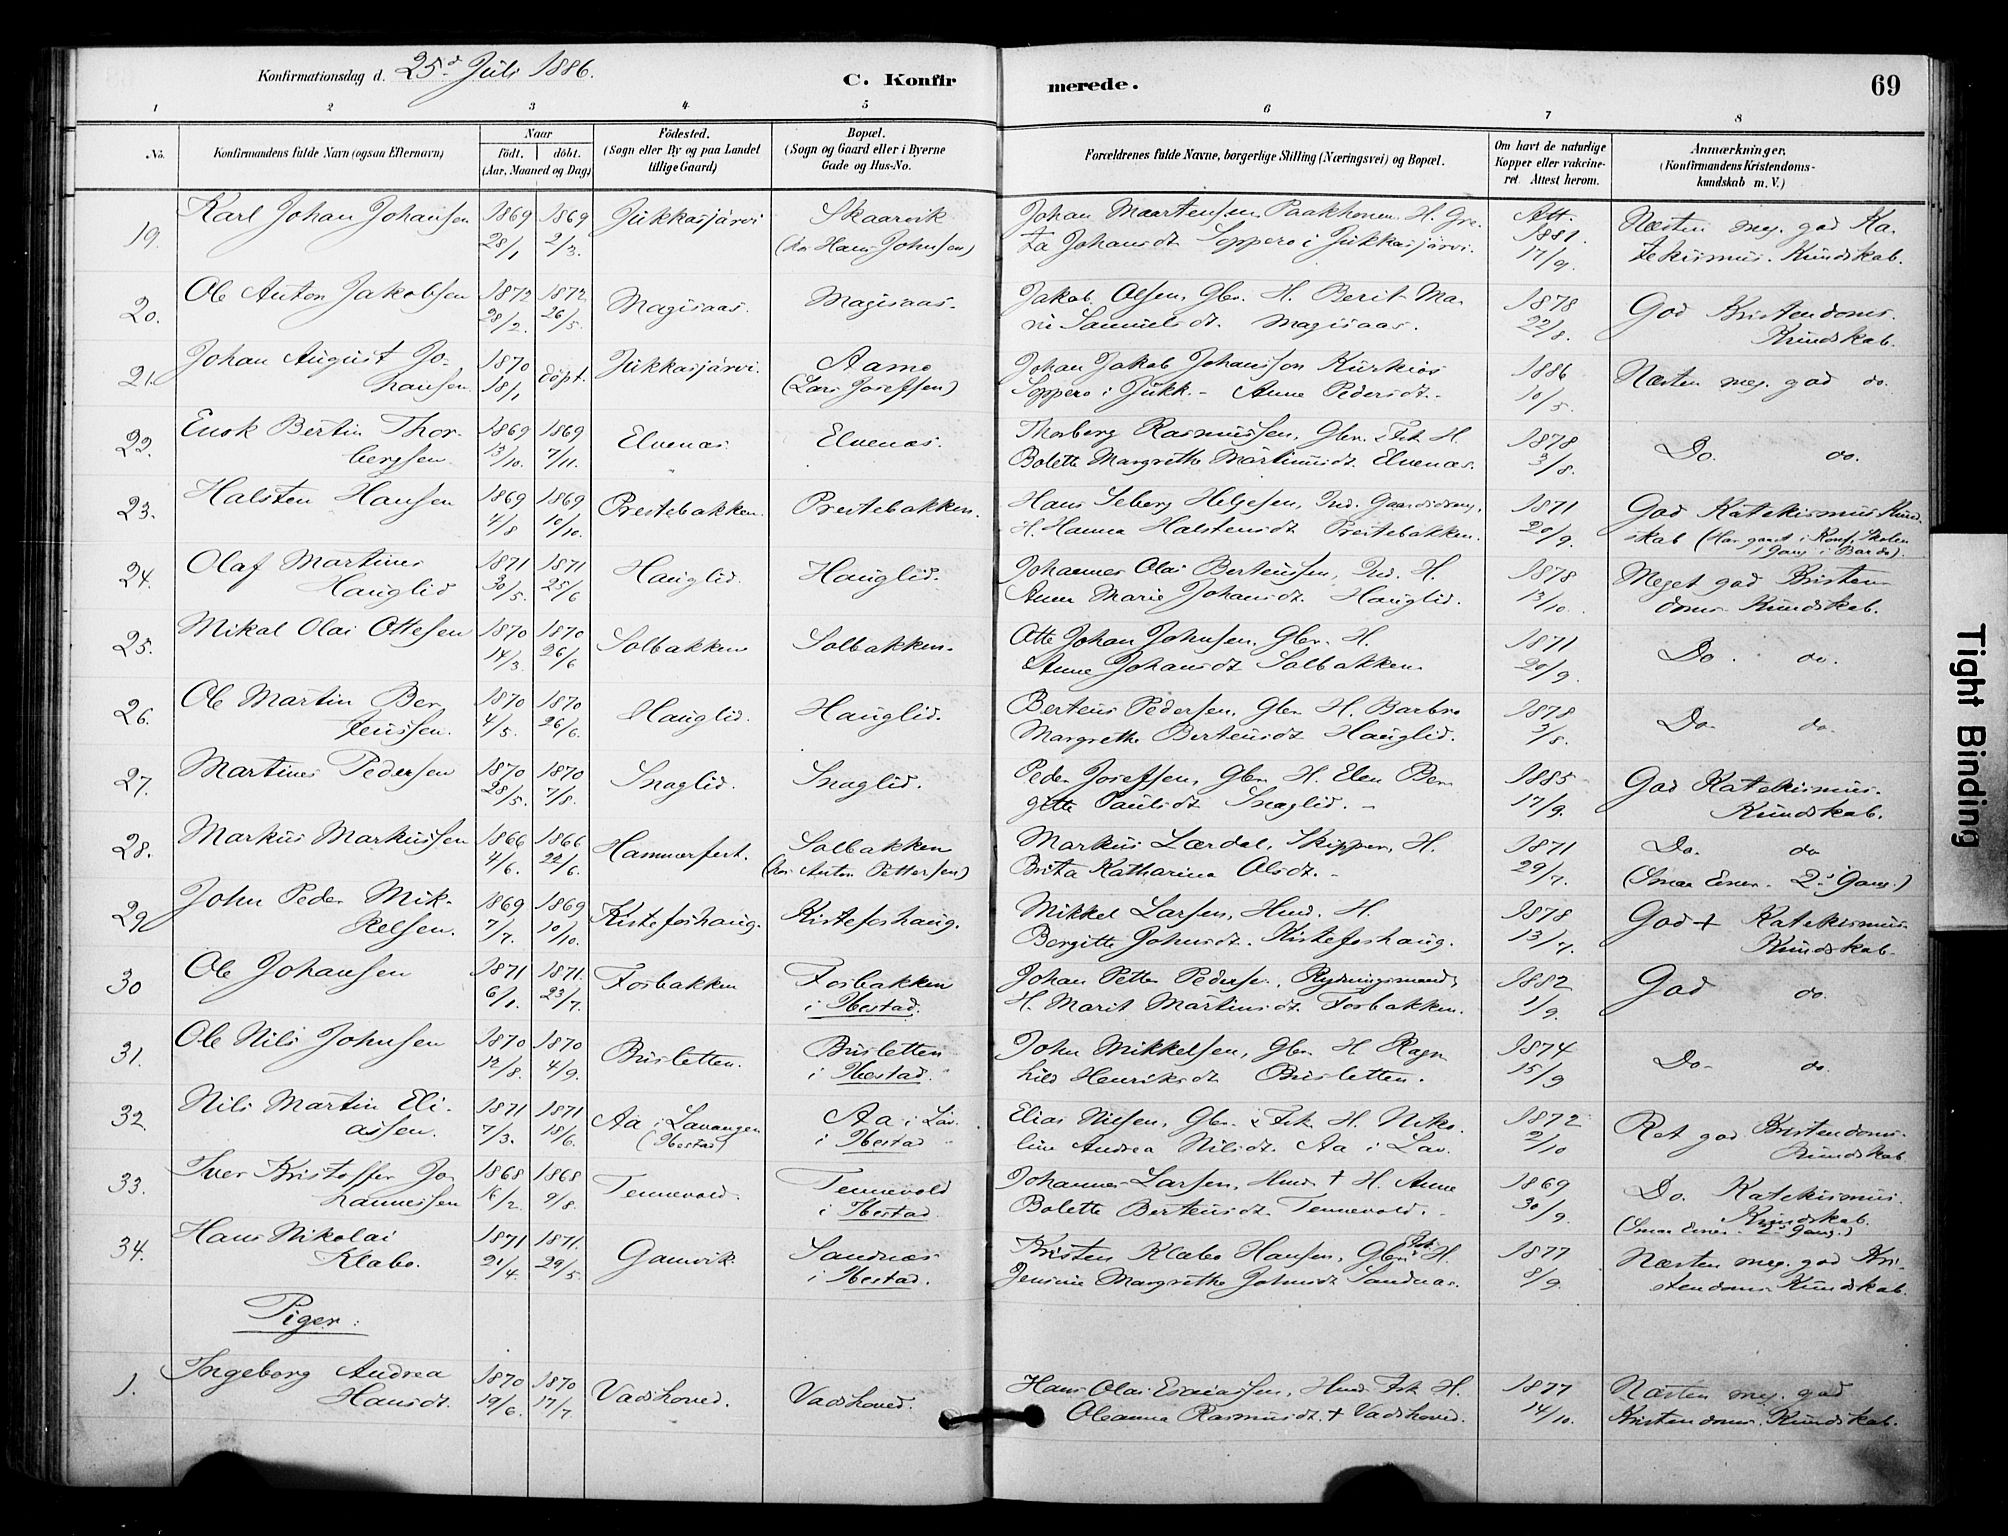 Konfirmationsdag d. 25d Juli 1886.
C. Konfirmerede.
69
1 2 3 4 5 6 7 8
No.
Konfirmandens fulde Navn (ogsaa Efternavn)
Naar
födt. | döbt.
(Aar, Maaned og Dag)
Födested.
(Sogn eller By og paa Landet
tillige Gaard)
Bopæl.
(Sogn og Gaard eller i Byerne
Gade og Hus-No.
Forældrenes fulde Navne, borgerlige Stilling (Næringsvei) og Bopæl.
Om havt de naturlige
Kopper eller vakcine-
ret Attest herom.
Anmærkninger,
(Konfirmandens Kristendoms-
kundskab m. V.)
Karl Johan Johansen 1869 1869 Jukkasjärvi Skaarvik Johan Maartensen Paakhonen H. Gre- Att. Næsten meg. god Ka-
19. 28/1 2/3. (hos Hans Johnsen) ta Johansdt. Soppero i Jukkasjärvi. 1881. 17/9. tekismus. Kundskab.
Ole Anton Jakobsen 1872 1872 Magisaas. Magisaas. Jakob Olsen, Gbr. H. Berit Ma- 1878 God Kristendoms.
20. 28/2. 26/5. rie Samuelsdt. Magisaas. 22/8. Kundskab.
Johan August Jo- 1870 döpt. Jukkasjärvi. Aamo Johan Jakob Johansson Kurkios 1886 Næsten meg. god do.
21. hansen 18/1 (Lars Joseffsen) Soppero i Jukk. - Anne Pedersdt. - 10/5.
Enok Bertin Thor- 1869 1869 Elvenæs. Elvenæs. Thorberg Rasmussen, Gbr. & Fisk. H. 1878 Do. do.
22. bergsen 13/10. 7/11. Bolette Margrethe Martinusdt. Elvenæs. 3/8.
23. Halsten Hansen 1869 1869 Prestebakken. Prestebakken. Hans Seberg Helgesen, Ind. 1871 God Katekismus Kund-
4/8 10/10. H. Hanna Halstensdt. Prestebakken. 20/9. skab (Har gaaet i Konf. Skolen
1 Gang i Bardo).
24. Olaf Martines 1871 1871 Hauglid. Hauglid. Johannes Olai Berteussen, Ind. H. 1878 Meget god Kristen-
Hauglid 30/5. 25/6 Anne Marie Johansdt. Hauglid. 13/10. doms Kundskab.
25. Mikal Olai Ottesen 1870 1870 Solbakken Solbakken. Otte Johan Johnsen, Gbr. H. 1871 Do. do.
14/3. 26/6 Anne Johansdt. Solbakken 20/9.
26. Ole Martin Ber- 1870 1870 Hauglid. Hauglid. Berteus Pedersen, Gbr. H. Barbro 1878 Do. do.
teussen. 4/5. 26/6. Margrethe Berteusdt. Hauglid. 3/8.
27. Martines Pedersen 1870 1870 Snaglid. Snaglid. Peder Joseffsen, Gbr. H. Elen Ber- 1885 God Katekismus.
28/5. 7/8. gitte Paulsdt. Snaglid. - 17/9. Kundskab.
28. Markus Markussen 1866 1866 Hammerfest. Solbakken Markus Lærdal, Skipper, H. 1871 Do. do
4/6. 22/6. (hos Anton Pettersen) Brita Katharina Olsdt. - 29/7. (Smaa Evner. 2d Gang.)
29 John Peder Mik- 1869 1869 Kistefoshaug. Kistefoshaug. Mikkel Larsen, Hmd. H. 1878 God + Katekismus
kelsen. 7/7. 10/10. Bergitte Johnsdt. Kistefoshaug. 13/7. Kundskab.
30 Ole Johansen 1871 1871. Fosbakken Fosbakken Johan Petter Pedersen, Rydningsmand, 1882 God do.
6/1. 23/7. i Ibestad. H. Marit Martinusdt. Fosbakken. 1/9.
31. Ole Nils Johnsen 1870 1870 Brusletten. Brusletten John Mikkelsen, Gbr. H. Ragn- 1874 Do. do.
12/8. 4/9. i Ibestad. hild Henriksdt. Brusletten. 15/9
32. Nils Martin Eli- 1871 1871 Aa i Lavangen Aa i Lav. Elias Nilsen, Gbr. & Fisk. H. Niko- 1872 Ret god Kristendoms-
assen. 7/3. 18/6. (Ibestad) i Ibestad line Andrea Nilsdt. Aa i Lav. 2/10 Kundskab
33. Iver Kristoffer Jo- 1868 1868 Tennevold. Tennevold Johannes Larsen, Hmd. + H. Anne 1869 Do. Katekismus.
hannessen 16/2. 9/8. i Ibestad Bolette Berteusdt. Tennevold. 30/9. Kundskab.
(Smaa Evner. 2d Gang.)
34. Hans Nikolai 1871 1871. Gamvik. Sandnæs Kristen Klabo Hansen, Gbr. Fisk. H. 1877 Næsten meg. god Kri-
Klabo. 21/4. 29/5. i Ibestad. Jensine Margrethe Johnsdt. Sandnæs. 8/9. stendoms Kundskab.
Piger:
1. Ingeborg Andrea 1870 1870 Vadshoved. Vadshoved. Hans Olai Esaiassen, Hmd. Fisk. H. 1877 Næsten meg. god
Hansdt. 19/6. 17/7. Oleanna Rasmusdt. + Vadshoved. 14/10. Kristendoms. Kundskab.
Tight Binding